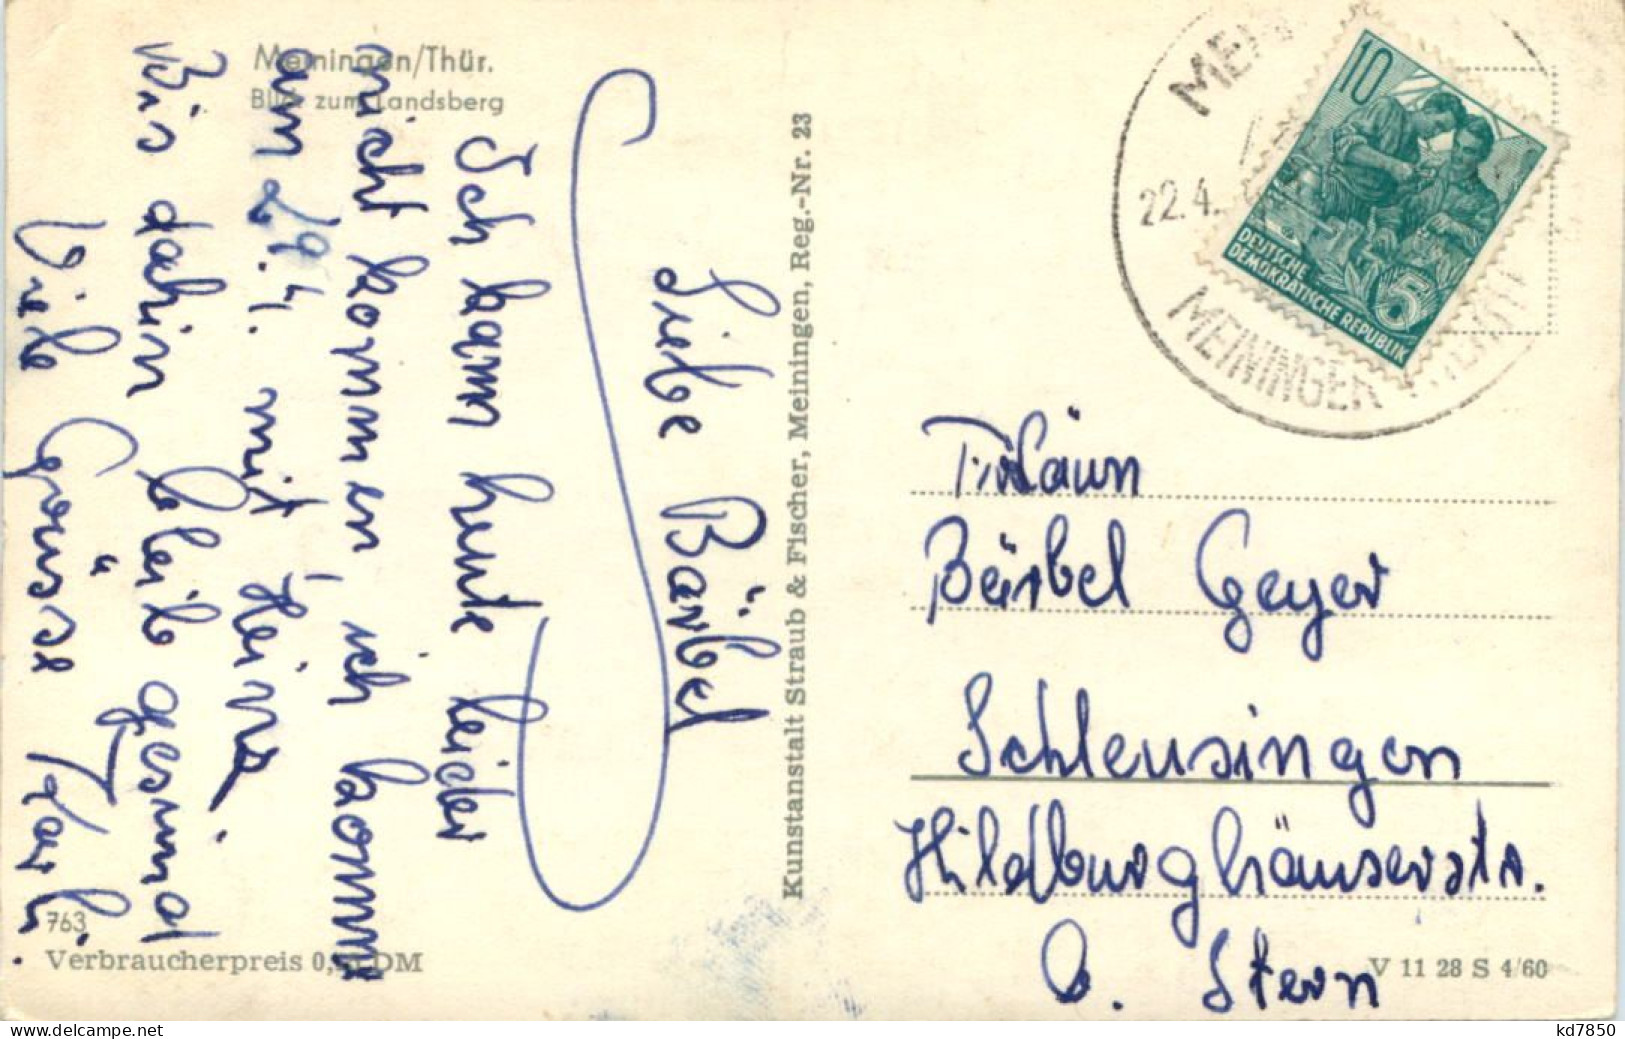 Meiningen/Thür.
Blick zum Landsberg
Liebe Bärbel
Ich kann heute leider
nicht kommen, ich komme
am 29.4. mit Heinz.
Bis dahin bleib gesund
Viele Grüsse Karli.
763
Verbraucherpreis 0, DM
Kunstanstalt Straub & Fischer, Meiningen, Reg.-Nr. 23
22.4.
MEININGER
10
DEUTSCHE
DEMOKRATISCHE REPUBLIK
5
Bärbel Geyer
Schleusingen
Hildburghäuserstr.
b. Stern
V 11 28 S 4/60
www.delcampe.net
kd7850